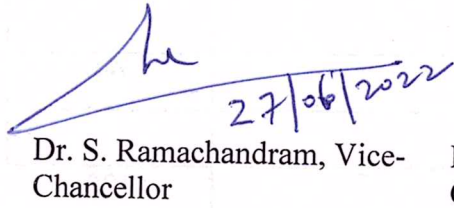 27/06/2022
Dr. S. Ramachandram, Vice-
Chancellor